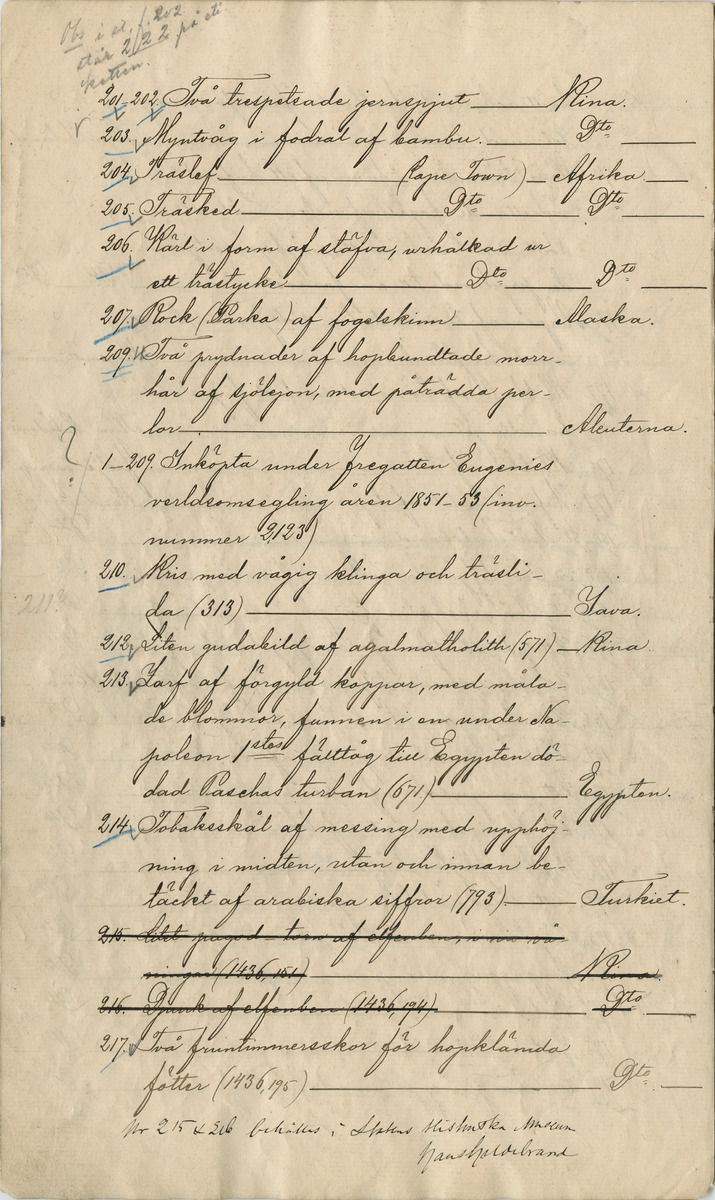 Obs i st. f. 202
står 2/22 på eti
ketten.
201-202. Två trespetsade jernspjut Kina.
203. Myntvåg i fodral af bambu. Dto
204. Träslef (Cape Town) Afrika
205. Träsked Dto Dto
206. Kärl i form af stäfva, urhålkad ur
ett trästycke Dto Dto
207. Rock (Parka) af fogelskinn Alaska.
209. Två prydnader af hopbundtade morr-
hår af sjölejon, med påträdda per-
lor Aleuterna.
?
1-209. Inköpta under fregatten Eugenies
verldsomsegling åren 1851-53 (inv.
nummer 2,123)
210. Kris med vågig klinga och träsli-
da (313) Java.
2113
212. Liten gudabild af agalmatholith (571) Kina.
213. Zarf af förgyld koppar, med måla-
de blommor, funnen i en under Na-
poleon 1stes fälttåg till Egypten dö-
dad Paschas turban (671) Egypten.
214. Tobaksskål af messing med upphöj-
ning i midten, utan och innan be-
täckt af arabiska siffror (793) Turkiet.
215. Litet pagod-torn af elfenben, i vå-
ningar (1436,151) Kina.
216. Djunk af elfenben (1436,194) Dto
217. Två fruntimmersskor för hopklämda
fötter (1436,195) Dto
Nr 215 & 216 behålles i Statens Historiska Museum
Hans Hildebrand